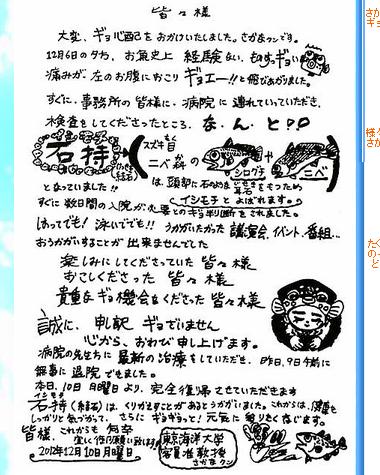 皆々様
大変、ギョ心配をおかけいたしました。さかなクンです。
12月6日の夕方、お魚史上 経験ない、ものすギョい
痛みが 左のお腹におこり ギョエー!!と飛びあがりました。
すぐに、事務所の皆様に、病院に 連れていっていただき、
検査をしてくださったところ、な・ん・と
石持
(結石)
スズキ目
ニベ科の
シログチ
や
ニベ
は、頭部に石のような耳石をもつため
イシモチ とよばれます。
となっていました!!
すぐに数日間の入院が必要とのギョ判断をされました。
はってでも! 泳いででも!! うかがいたかった 講演会、イベント、番組…
おうかがいすることが 出来ませんでした
楽しみにしてくださっていた 皆々様
おこしくださった 皆々様
貴重なギョ機会をくださった 皆々様
誠に、申し訳 ギョざいません
心から、おわび申し上げます。
病院の先生方に 最新の治療をしていただき、昨日、9日午前に
無事に 退院できました。
本日、10日 月曜日より、完全復帰させていただきます
イシモチ
石持(結石)は、くりかえすことがあるとうかがいました。これからは、健康を
しっかりと気づかって、さらにギョギョっと! 元気に参りたく存じます。
皆様、これからも 何卒
宜しく御願い致します
2012年12月10日月曜日
東京海洋大学
客員准教授
さかなクン